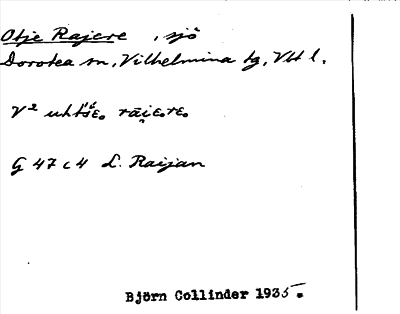 Otje Rajere , sjö
Dorotea sn, Vilhelmina tg, Vtt l.
V² uhtšɛ. rāi̯ɛ.rɛ.
G 47 c 4 L. Raijan
Björn Collinder 1935.